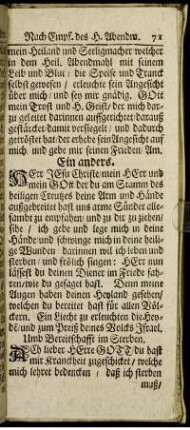 Nach Empf. des H. Abendm. 71
mein Heiland und Seeligmacher welcher
in dem Heil. Abendmahl mit seinem
Leib und Blut / die Speise und Tranck
selbst gewesen / erleuchte sein Angesicht
über mich / und sey mir gnädig. GOtt
mein Trost und H. Geist / der mich dar-
zu geleitet darinnen aufgerichtet darauß
gestärcket damit versiegelt / und dadurch
getröstet hat / der erhebe sein Angesicht auf
mich und gebe mir seinen Frieden Am.
Ein anders.
HErr JEsu Christe / mein HErr und
mein GOtt der du am Stamm des
heiligen Creutzes deine Arm und Hände
außgebreitet hast uns arme Sünder alle-
samdt zu empfahen / und zu dir zu ziehen /
sihe / ich gebe und lege mich in deine
Hände und schwinge mich in deine heili-
ge Wunden darinnen wil ich leben und
sterben / und frölich singen: HErr nun
lässest du deinen Diener im Friede fah-
ren / wie du gesaget hast. Denn meine
Augen haben deinen Heyland gesehen /
welchen du bereitet hast für allen Völ-
ckern. Ein Liecht zu erleuchten die Hey-
dē / und zum Preiß deines Volcks Israel.
Umb Bereitschafft im Sterben.
ACh lieber HErre GOTT / du hast
mir Kranckheit zugeschicket / welche
mich lehret bedencken / daß ich sterben
muß /